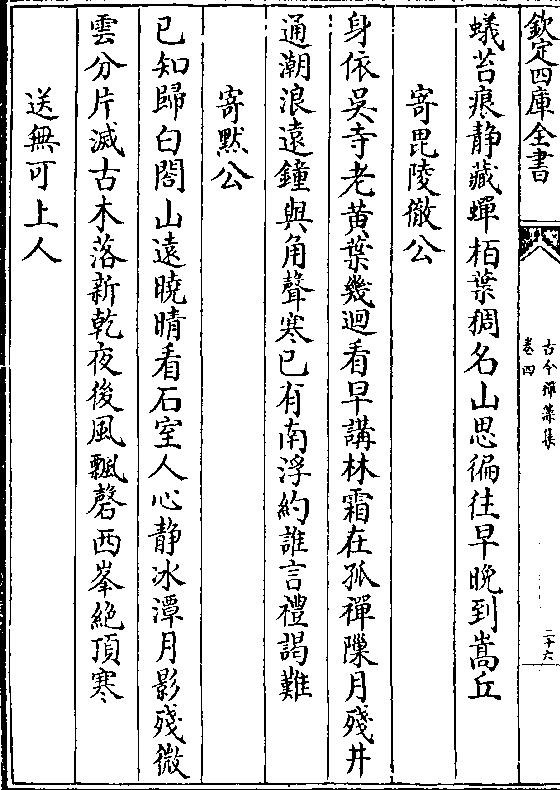 欽定四庫全書
古今禪藻集
卷四
二十六
蟻苔痕靜藏蟬栢葉稠名山思徧往早晚到嵩丘
寄毘陵徹公
身依吳寺老黄葉幾迴看早講林霜在孤禪隟月殘井
通潮浪遠鐘與角聲寒已有南浮約誰言禮謁難
寄黙公
已知歸白閣山遠曉晴看石室人心静冰潭月影殘微
雲分片滅古木落新乾夜後風飄磬西峯絶頂寒
送無可上人